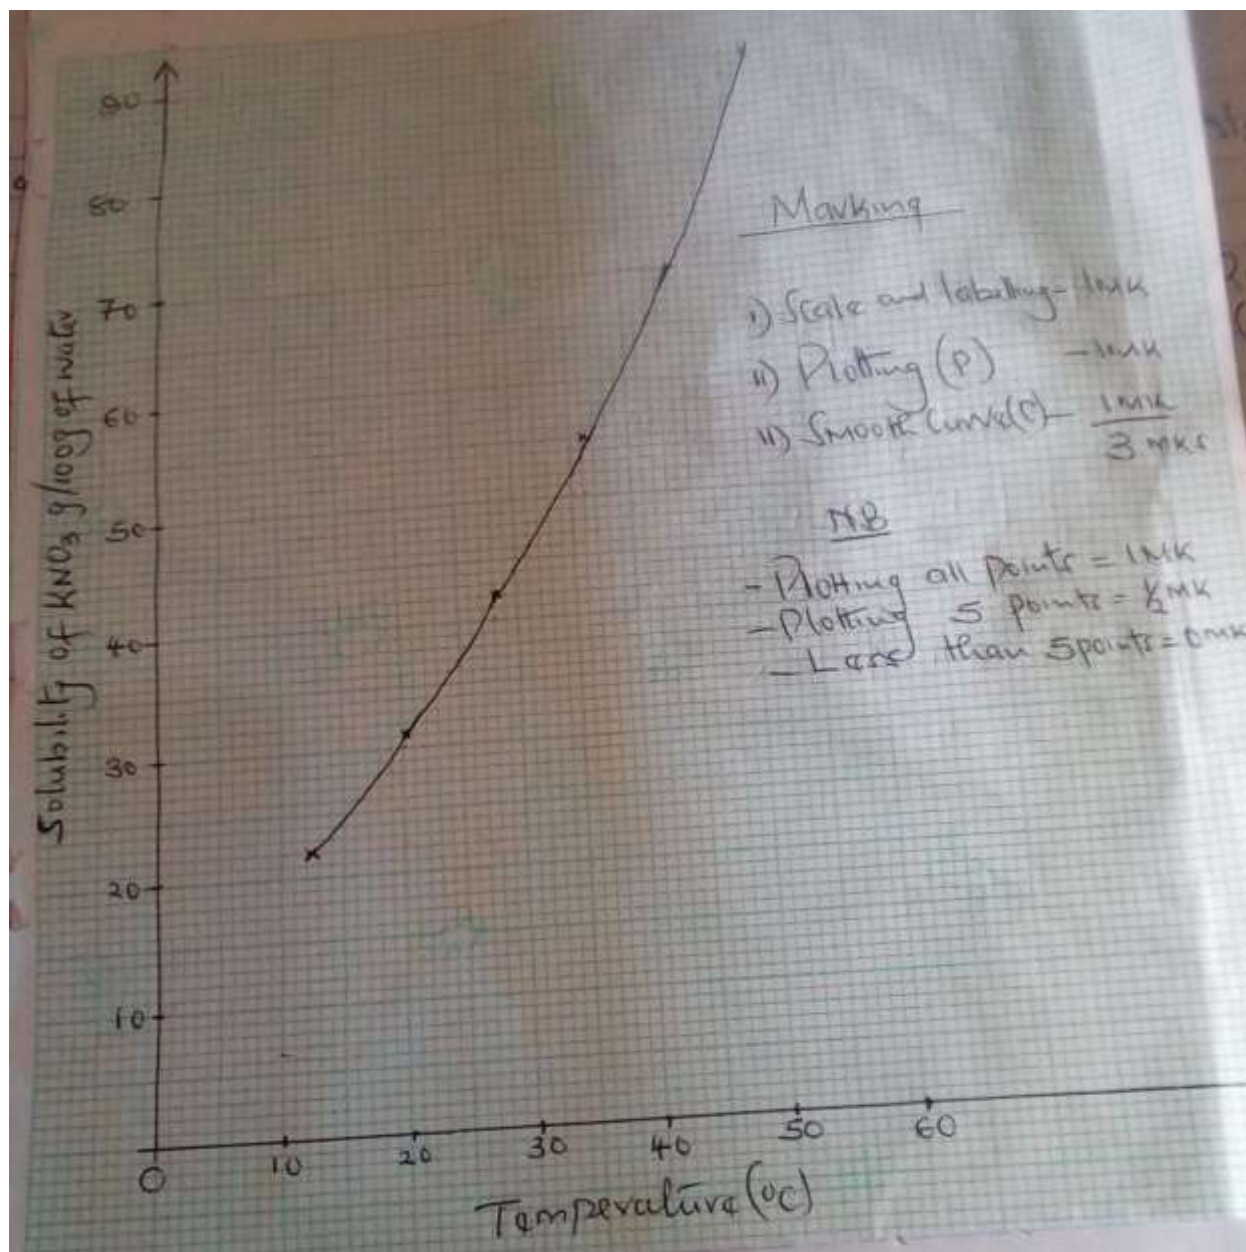 90
80
70
60
50
40
30
20
10
Solubility of KNO3 g/100g of water
0
10
20
30
40
50
60
Temperature (°C)
Marking
i) Scale and labelling - 1mk
ii) Plotting (P) - 1mk
ii) Smooth Curve(C) - 1mk
3 mks
NB
- Plotting all points = 1mk
- Plotting 5 points = ½ mk
- Less than 5 points = 0mk